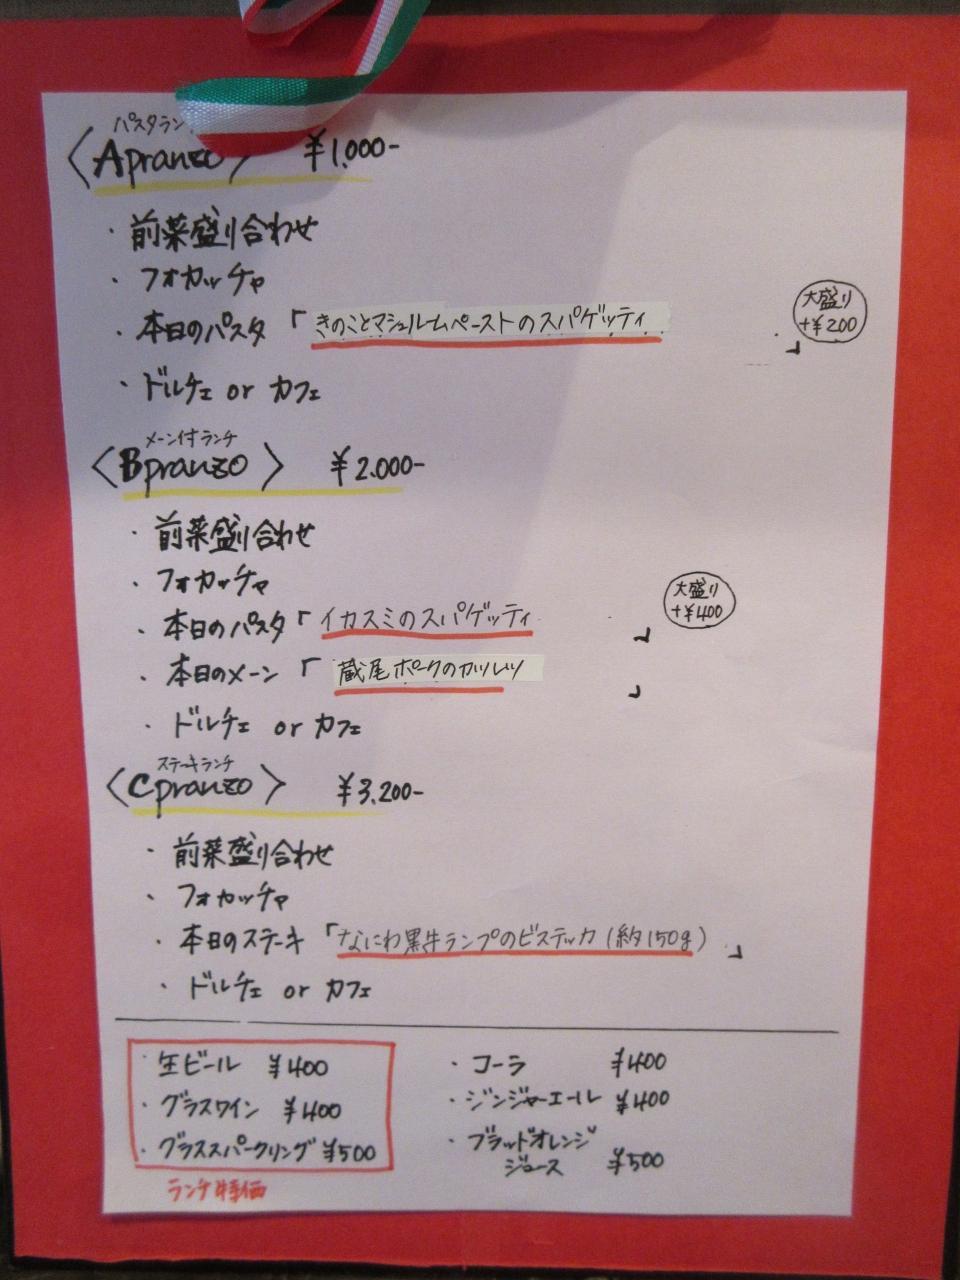 パスタラン
〈Apranzo〉 ¥1.000-
・前菜盛り合わせ
・フォカッチャ
・本日のパスタ「きのことマシュルームペーストのスパゲッティ」
大盛り
+¥200
・ドルチェ or カフェ
メーン付ランチ
〈Bpranzo〉 ¥2.000-
・前菜盛り合わせ
・フォカッチャ
・本日のパスタ「イカスミのスパゲッティ」
大盛り
+¥400
・本日のメーン「蔵尾ポークのカツレツ」
・ドルチェ or カフェ
ステーキランチ
〈Cpranzo〉 ¥3.200-
・前菜盛り合わせ
・フォカッチャ
・本日のステーキ「なにわ黒牛ランプのビステッカ(約150g)」
・ドルチェ or カフェ
・生ビール ¥400
・グラスワイン ¥400
・グラススパークリング ¥500
ランチ特価
・コーラ ¥400
・ジンジャーエール ¥400
・ブラッドオレンジ
ジュース ¥500